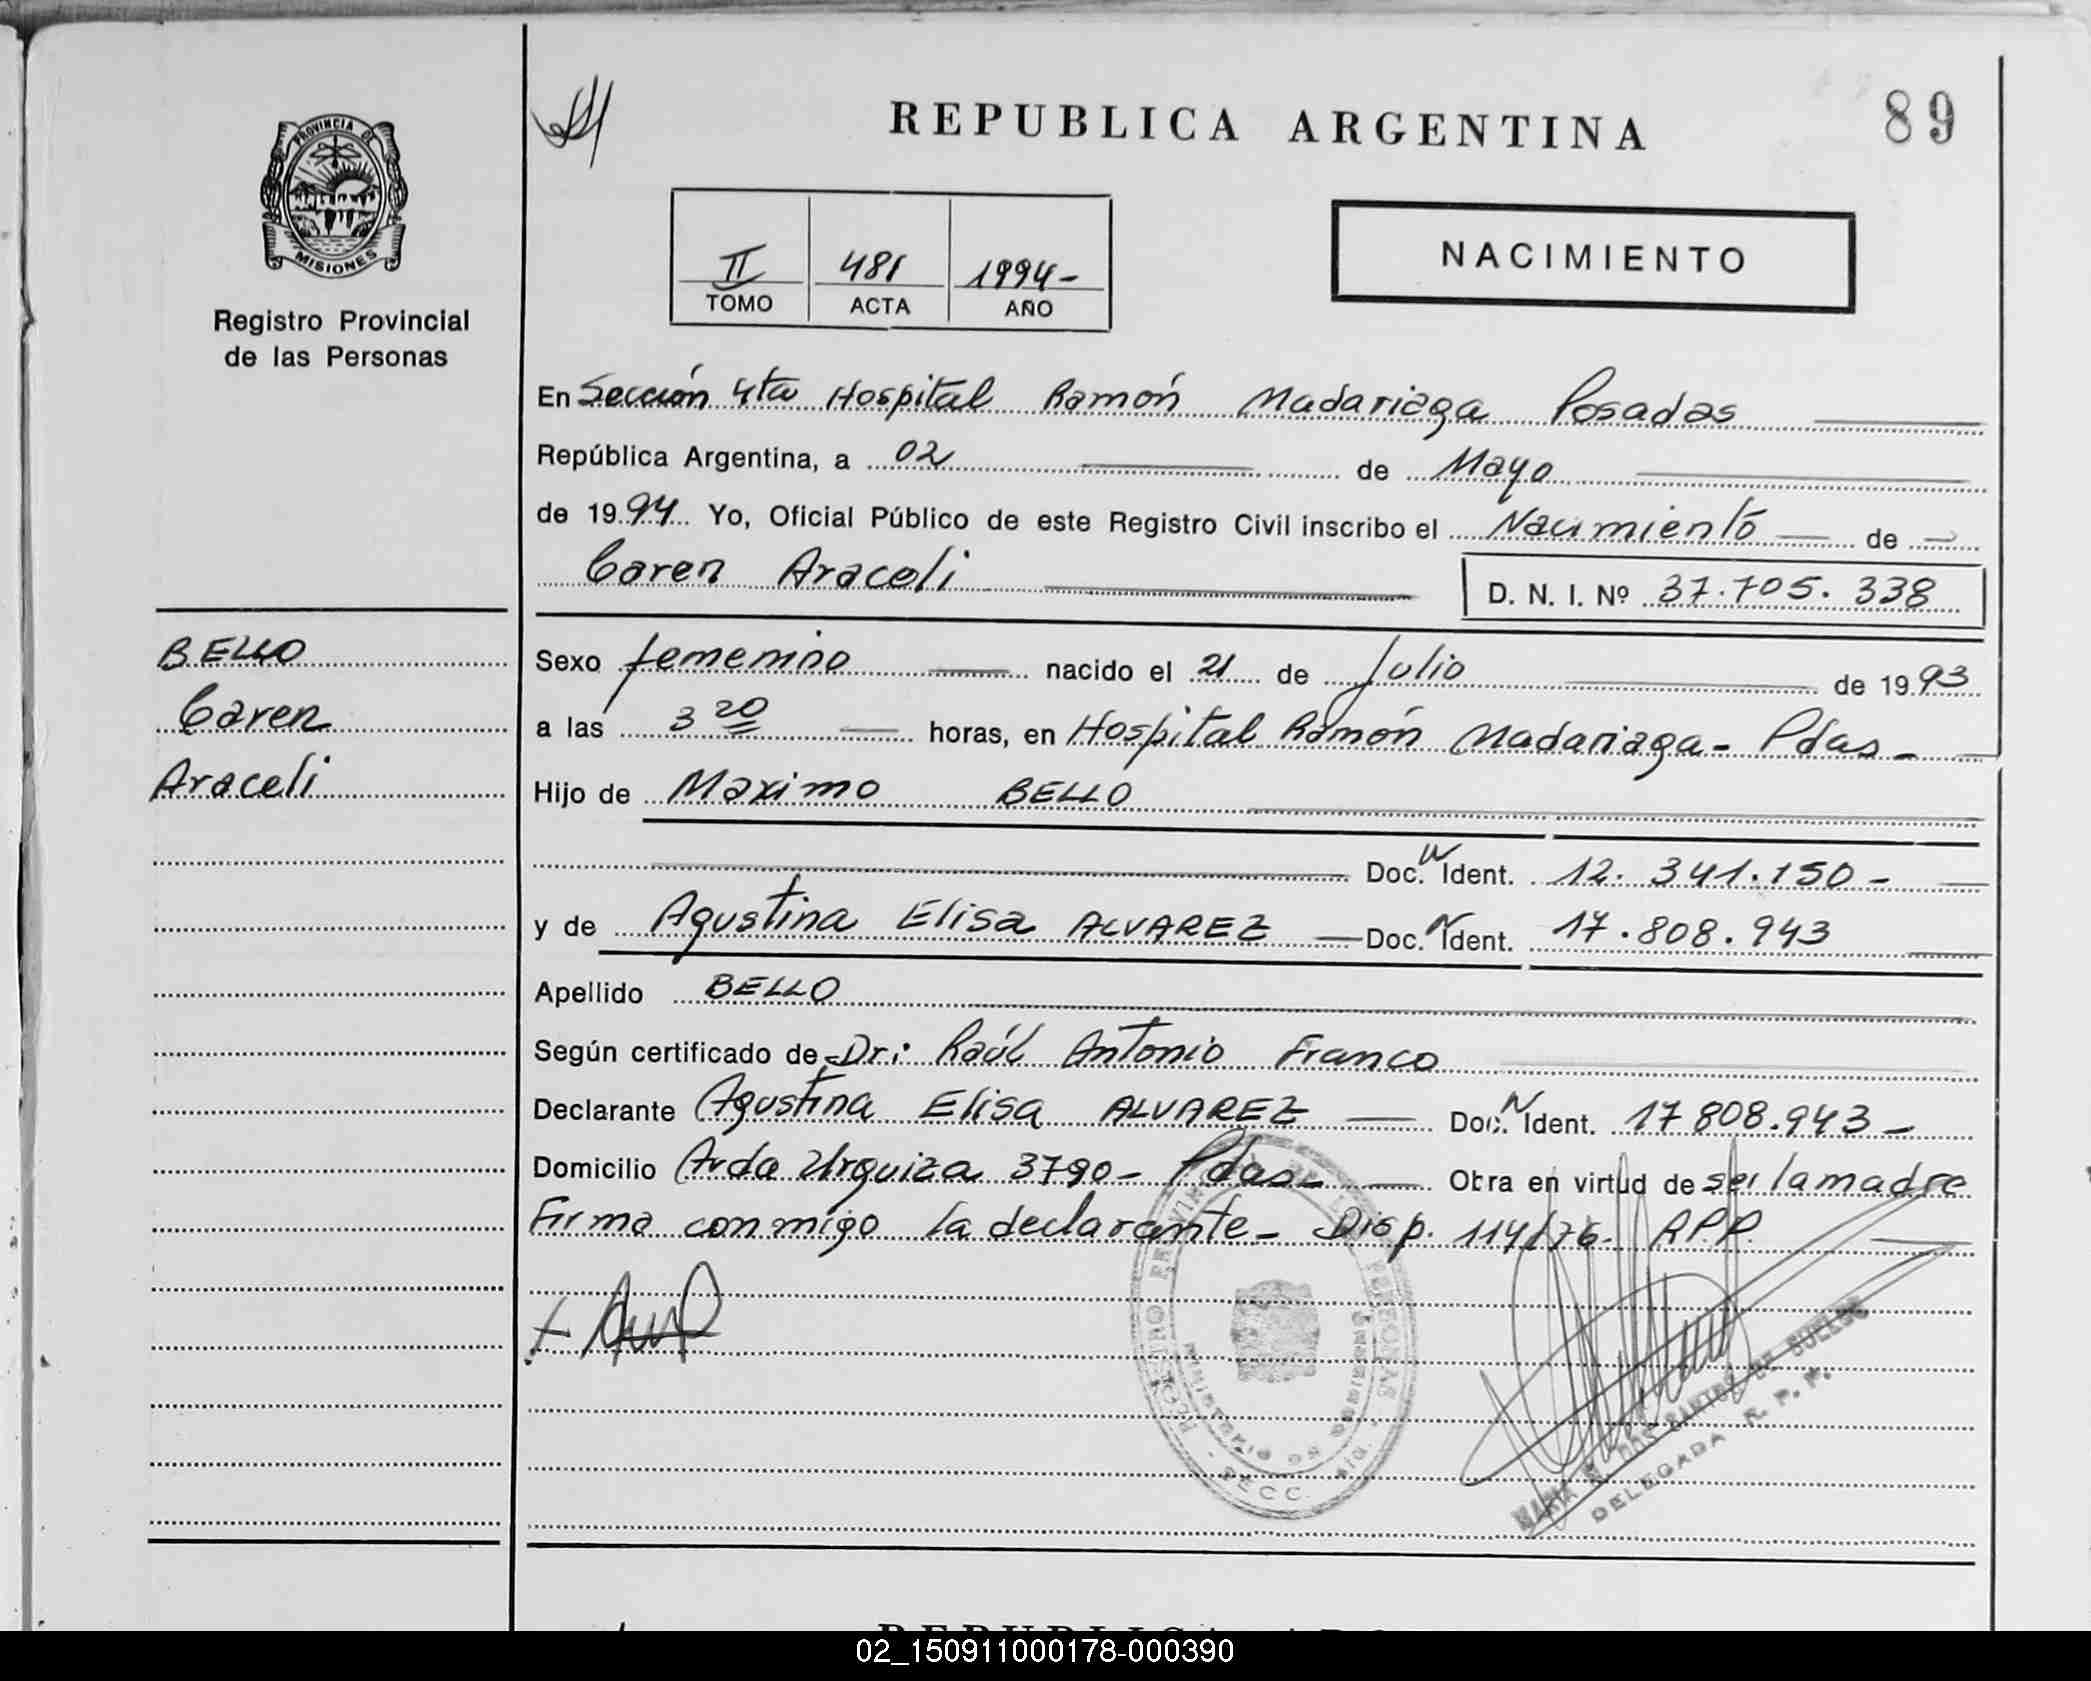 REPUBLICA ARGENTINA
89
PROVINCIA DE
MISIONES
Registro Provincial
de las Personas
II 481 1994-
TOMO ACTA AÑO
NACIMIENTO
En Sección 4ta Hospital Ramón Madariaga Posadas
República Argentina, a 02 de Mayo
de 1994 Yo, Oficial Público de este Registro Civil inscribo el Nacimiento de
Caren Araceli D. N. I. Nº 37.705.338
BELLO
Caren
Araceli
Sexo femenino nacido el 21 de Julio de 1993
a las 3 20 horas, en Hospital Ramón Madariaga - Pdas -
Hijo de Maximo BELLO
Doc. N Ident. 12.341.150 -
y de Agustina Elisa ALVAREZ Doc. N Ident. 17.808.943
Apellido BELLO
Según certificado de Dr: Raúl Antonio Franco
Declarante Agustina Elisa ALVAREZ Doc. N Ident. 17808.943 -
Domicilio Avda Urquiza 3790 - Pdas - Obra en virtud de ser la madre
Firma conmigo la declarante - Disp. 114/76. RPP
REGISTRO PERSONAS SECC.
DOS SANTOS DE
DELEGADA R. P. P.
02_150911000178-000390